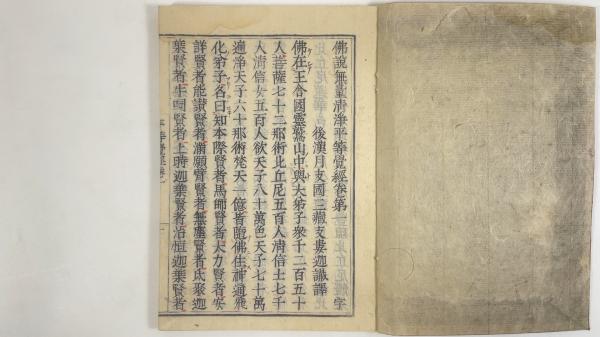 佛說無量清淨平等覺經卷第一 字
後漢月支國三藏支婁迦讖譯
佛在王舍國靈鷲山中與大弟子眾千二百五十
人菩薩七十二那術比丘尼五百人清信士七千
人清信女五百人欲天子八十萬色天子七十萬
遍淨天子六十那術梵天一億皆隨佛住神通飛
化弟子名曰知本際賢者馬師賢者大力賢者安
詳賢者能讚賢者滿願臂賢者無塵賢者氏聚迦
葉賢者牛呞賢者上時迦葉賢者治恒迦葉賢者